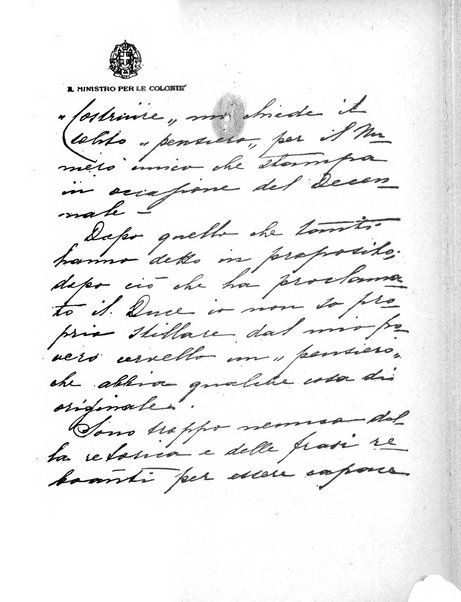 IL MINISTRO PER LE COLONIE
„Costruire„ mi chiede il
solito „pensiero„ per il Nu-
mero unico che stampa
in occasione del Decen-
nale –
Dopo quello che tanti
hanno detto in proposito,
dopo ciò che ha proclama-
to il Duce io non so pro-
prio stillare dal mio po-
vero cervello un „pensiero„
che abbia qualche cosa di
originale.
Sono troppo nemico del-
la retorica e delle frasi re-
boanti per essere capace